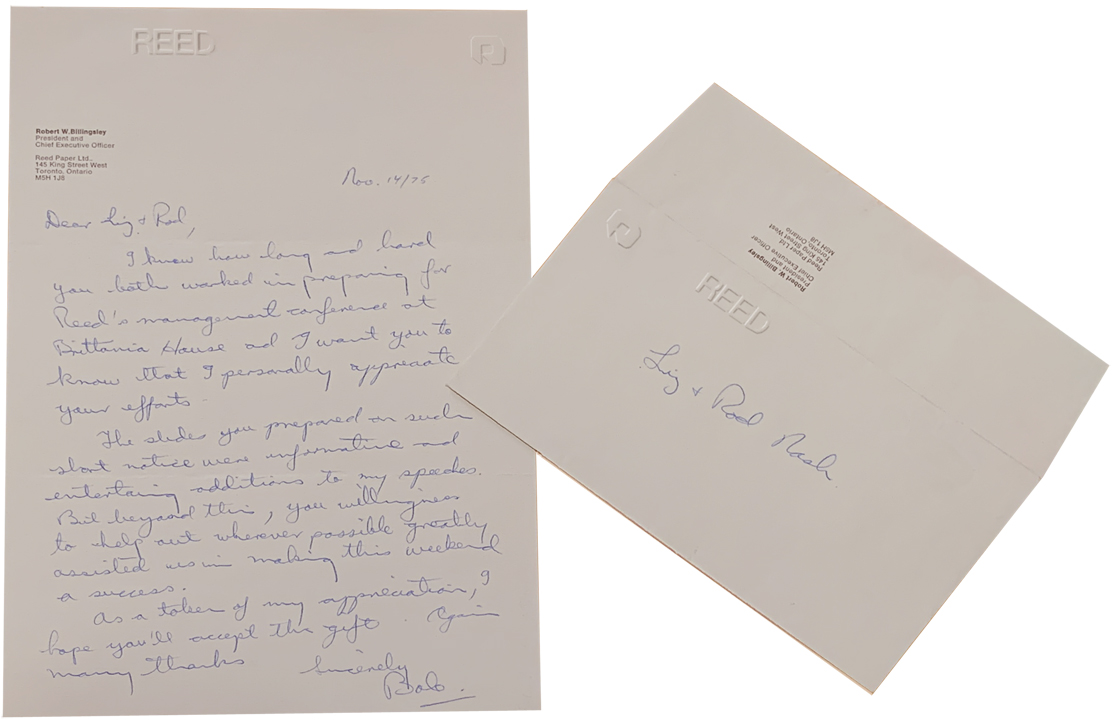 REED
R
Robert W. Billingsley
President and
Chief Executive Officer
Reed Paper Ltd.,
145 King Street West
Toronto, Ontario
M5H 1J8
Nov. 14/75
Dear Liz & Rod,
I know how long and hard
you both worked in preparing for
Reed's management conference at
Brittania House and I want you to
know that I personally appreciate
your efforts.
The slides you prepared on such
short notice were informative and
entertaining additions to my speeches.
But beyond this, you willingness
to help out wherever possible greatly
assisted us in making this weekend
a success.
As a token of my appreciation, I
hope you'll accept this gift. Again
many thanks
Sincerely
Bob.
R
REED
Robert W. Billingsley
President and
Chief Executive Officer
Reed Paper Ltd.
145 King Street West
Toronto, Ontario
M5H 1J8
Liz & Rod Nash